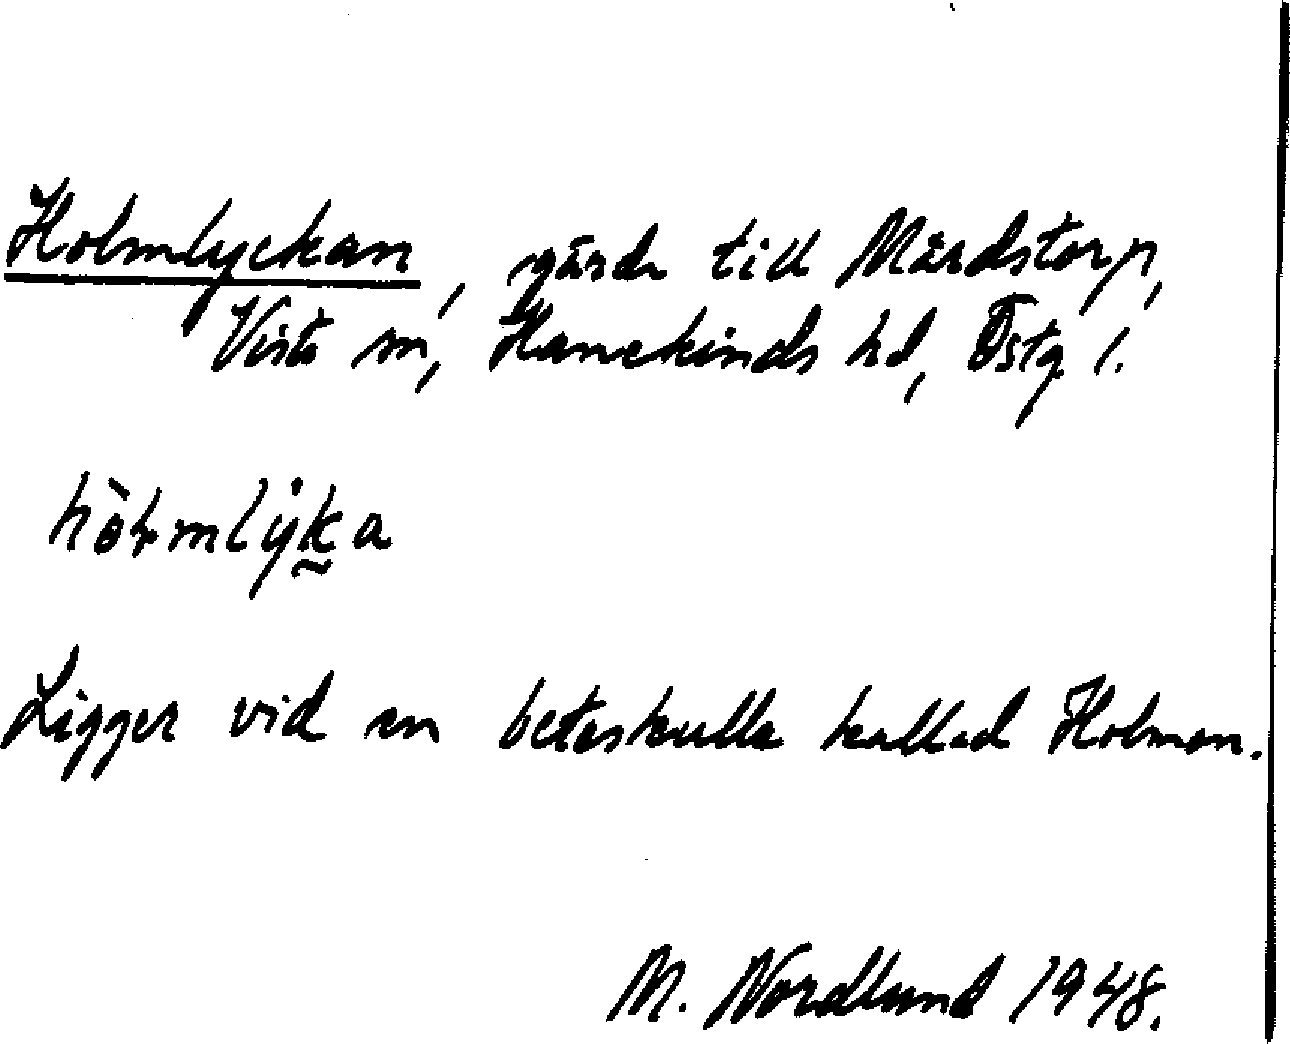 Holmlyckan, gärde till Mårdstorp,
Vists sn, Hanekinds hd, Östg l.
Ligger vid en beteskulle kallad Holmen.
M. Nordlund 1948.